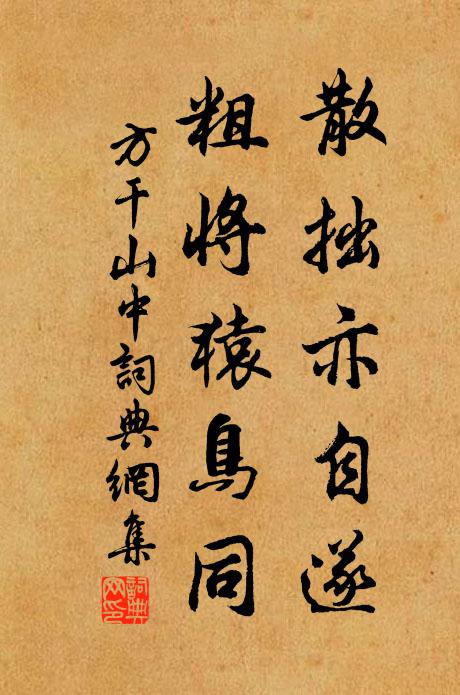 散拙亦自遂
粗將猿鳥同
方干山中詞典網集
詞典网印